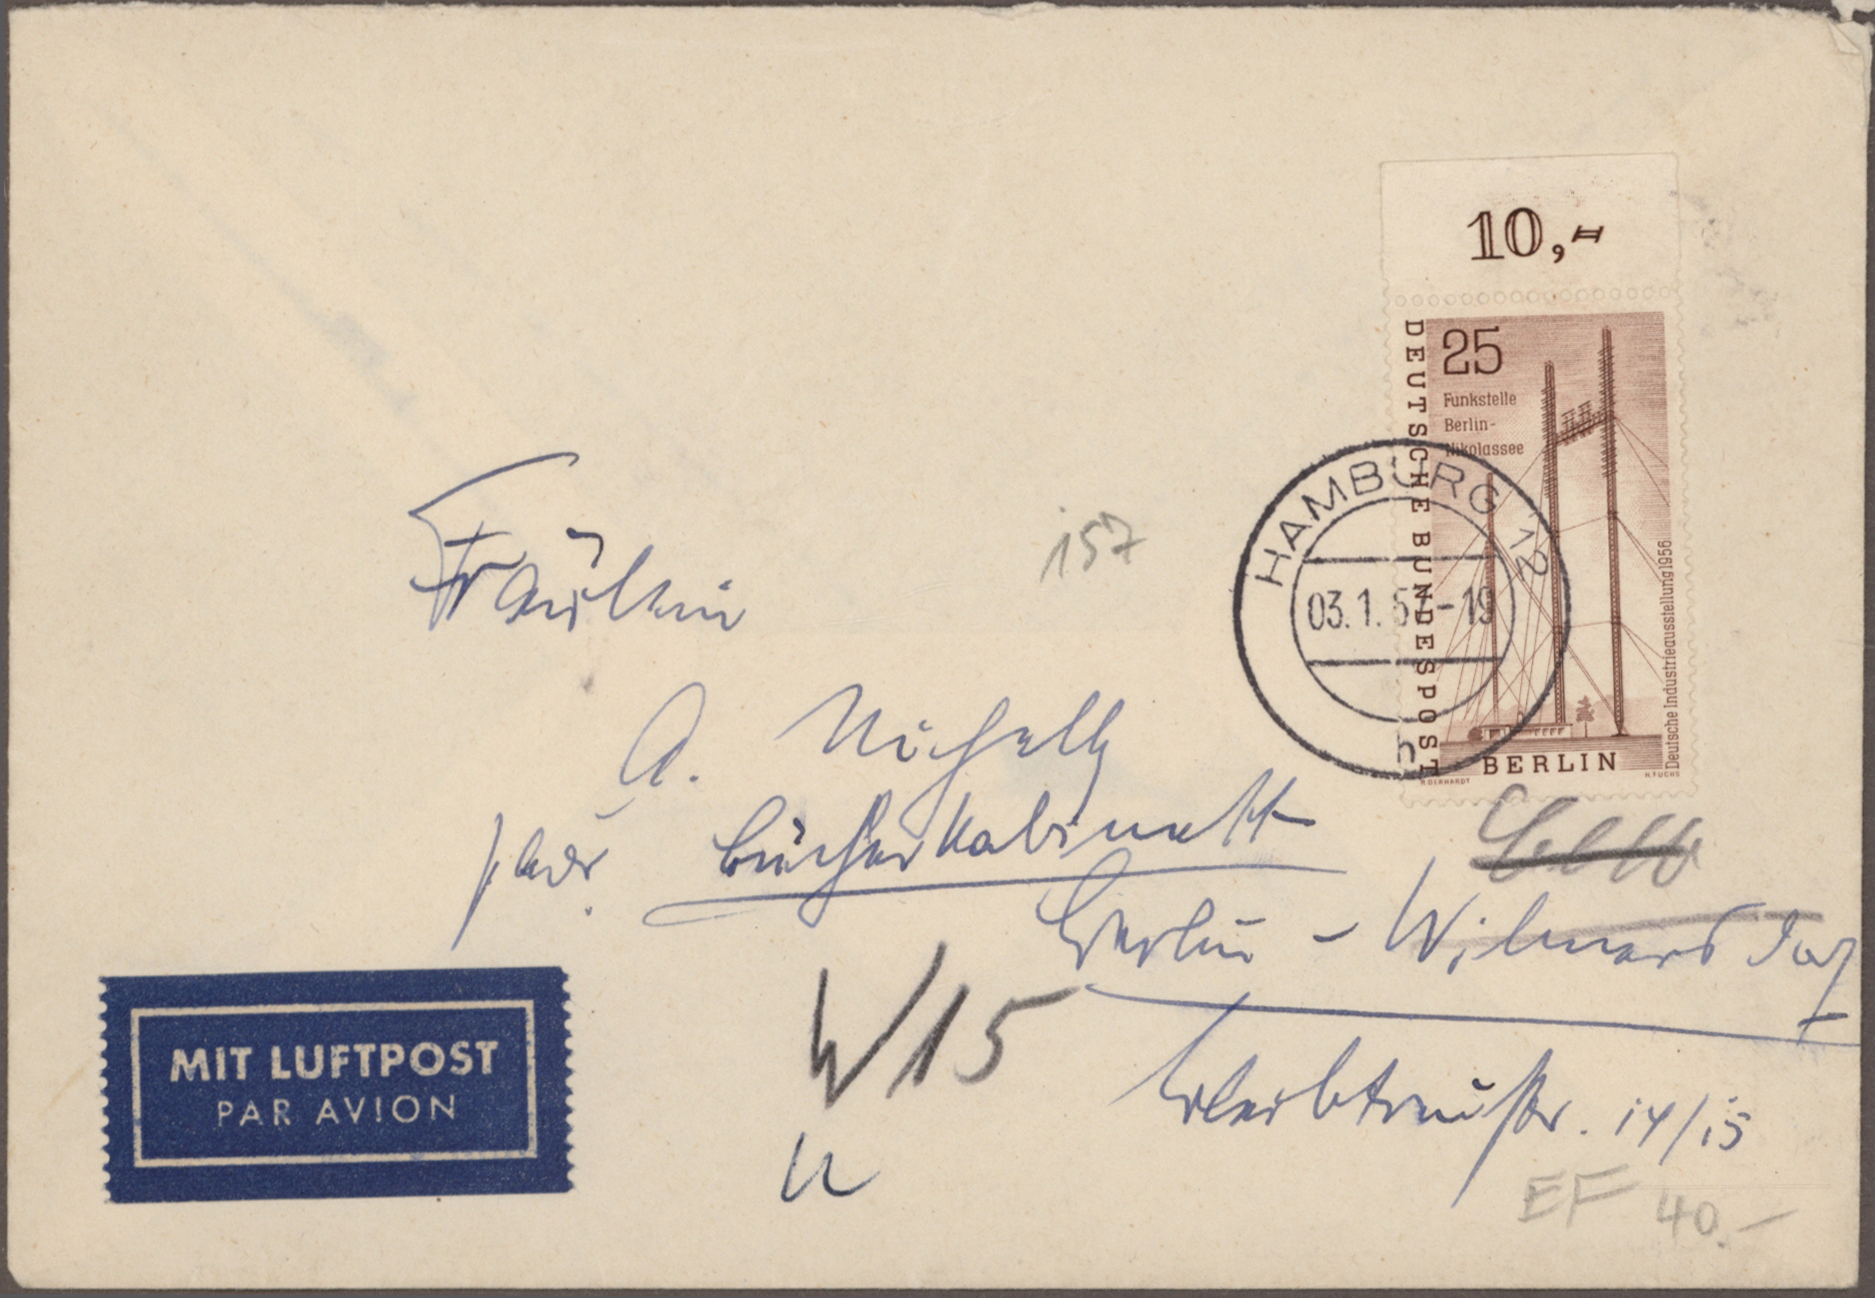 10,-
25
Funkstelle
Berlin-
Nikolassee
DEUTSCHE BUNDESPOST
Deutsche Industrieausstellung 1956
BERLIN
H. FUCHS
HAMBURG 12
03.1.57-19
h
157
Fräulein
A.
Bücherkabinett
Berlin - Wilmersdorf
Bleibtreustr. 14/15
W15
MIT LUFTPOST
PAR AVION
EF 40.-